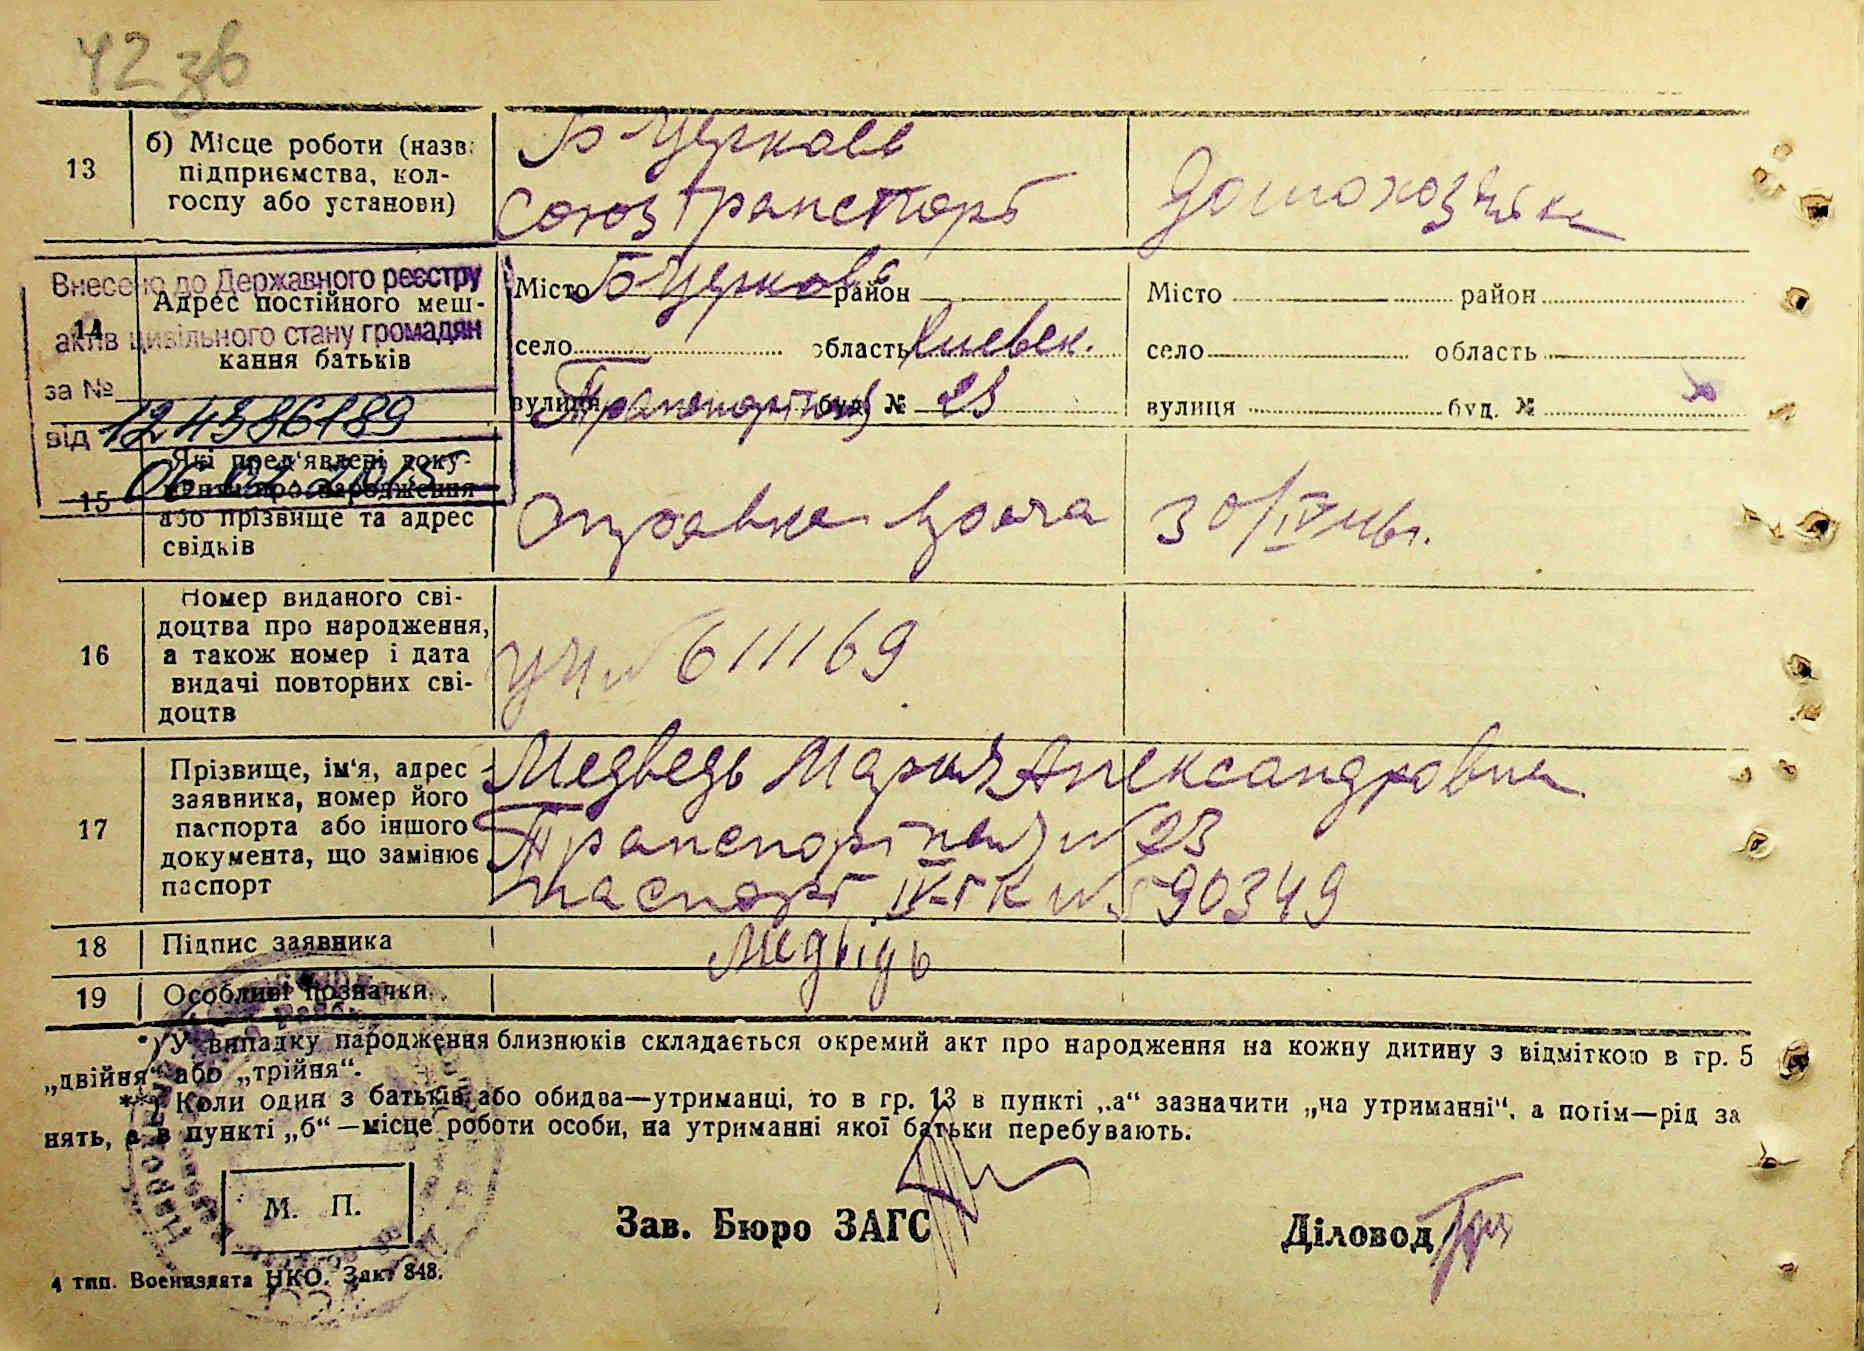 42 зв
13
б) Місце роботи (назва
підприємства, кол-
госпу або установи)
Б-Церковь
Союзтранспорт
Домохозяйка
14
Адрес постійного меш-
кання батьків
Місто Б-Церковь район
село область Киевск.
вулиця Транспортная буд. № 23
Місто район
село область
вулиця буд. №
Внесено до Державного реєстру
актів цивільного стану громадян
за №
від
06.02.2015
15
Які пред'явлені доку-
менти про народження
або прізвище та адрес
свідків
Справка врача
30/IV 46г.
16
Номер виданого сві-
доцтва про народження,
а також номер і дата
видачі повторних сві-
доцтв
УЧ № 611169
17
Прізвище, ім'я, адрес
заявника, номер його
паспорта або іншого
документа, що замінює
паспорт
Медведь Мария Александровна
Транспортная № 23
паспорт IV-ГК № 590349
18
Підпис заявника
Медвідь
19
Особливі позначки
*) У випадку народження близнюків складається окремий акт про народження на кожну дитину з відміткою в гр. 5
„двійня" або „трійня".
**) Коли один з батьків або обидва—утриманці, то в гр. 13 в пункті „а" зазначити „на утриманні", а потім—рід за
нять, а в пункті „б"—місце роботи особи, на утриманні якої батьки перебувають.
М. П.
Зав. Бюро ЗАГС
Діловод
4 тип. Воениздата НКО. Зак. 848.